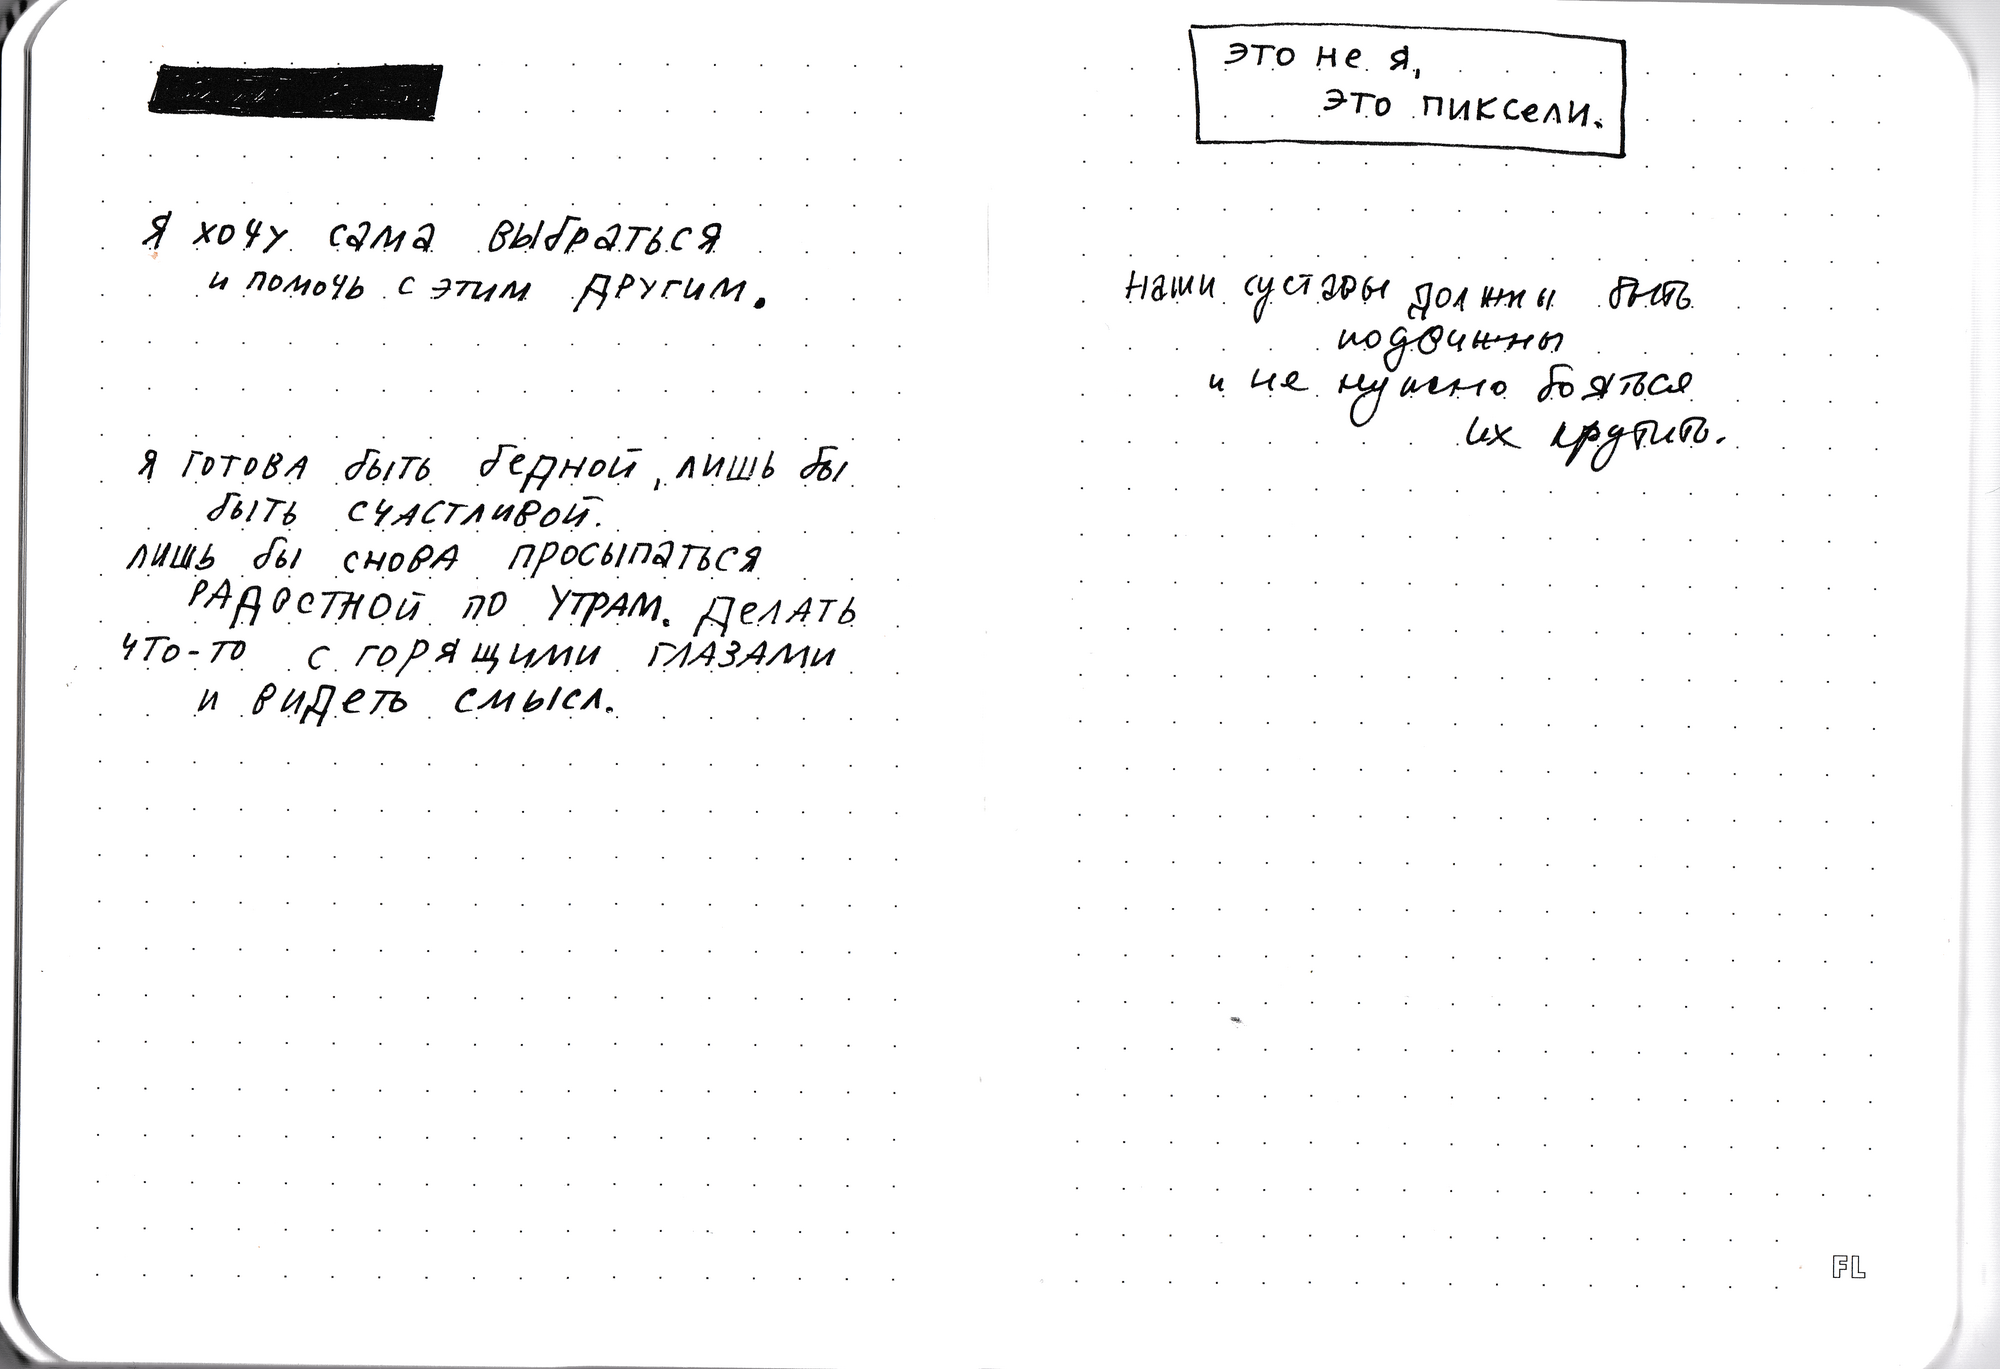 Я хочу сама выбраться
и помочь с этим другим.
я готова быть бедной, лишь бы
быть счастливой.
лишь бы снова просыпаться
радостной по утрам. Делать
что-то с горящими глазами
и видеть смысл.
это не я,
это пиксели.
наши суставы должны быть
подвижны
и не нужно бояться
их крутить.
FL